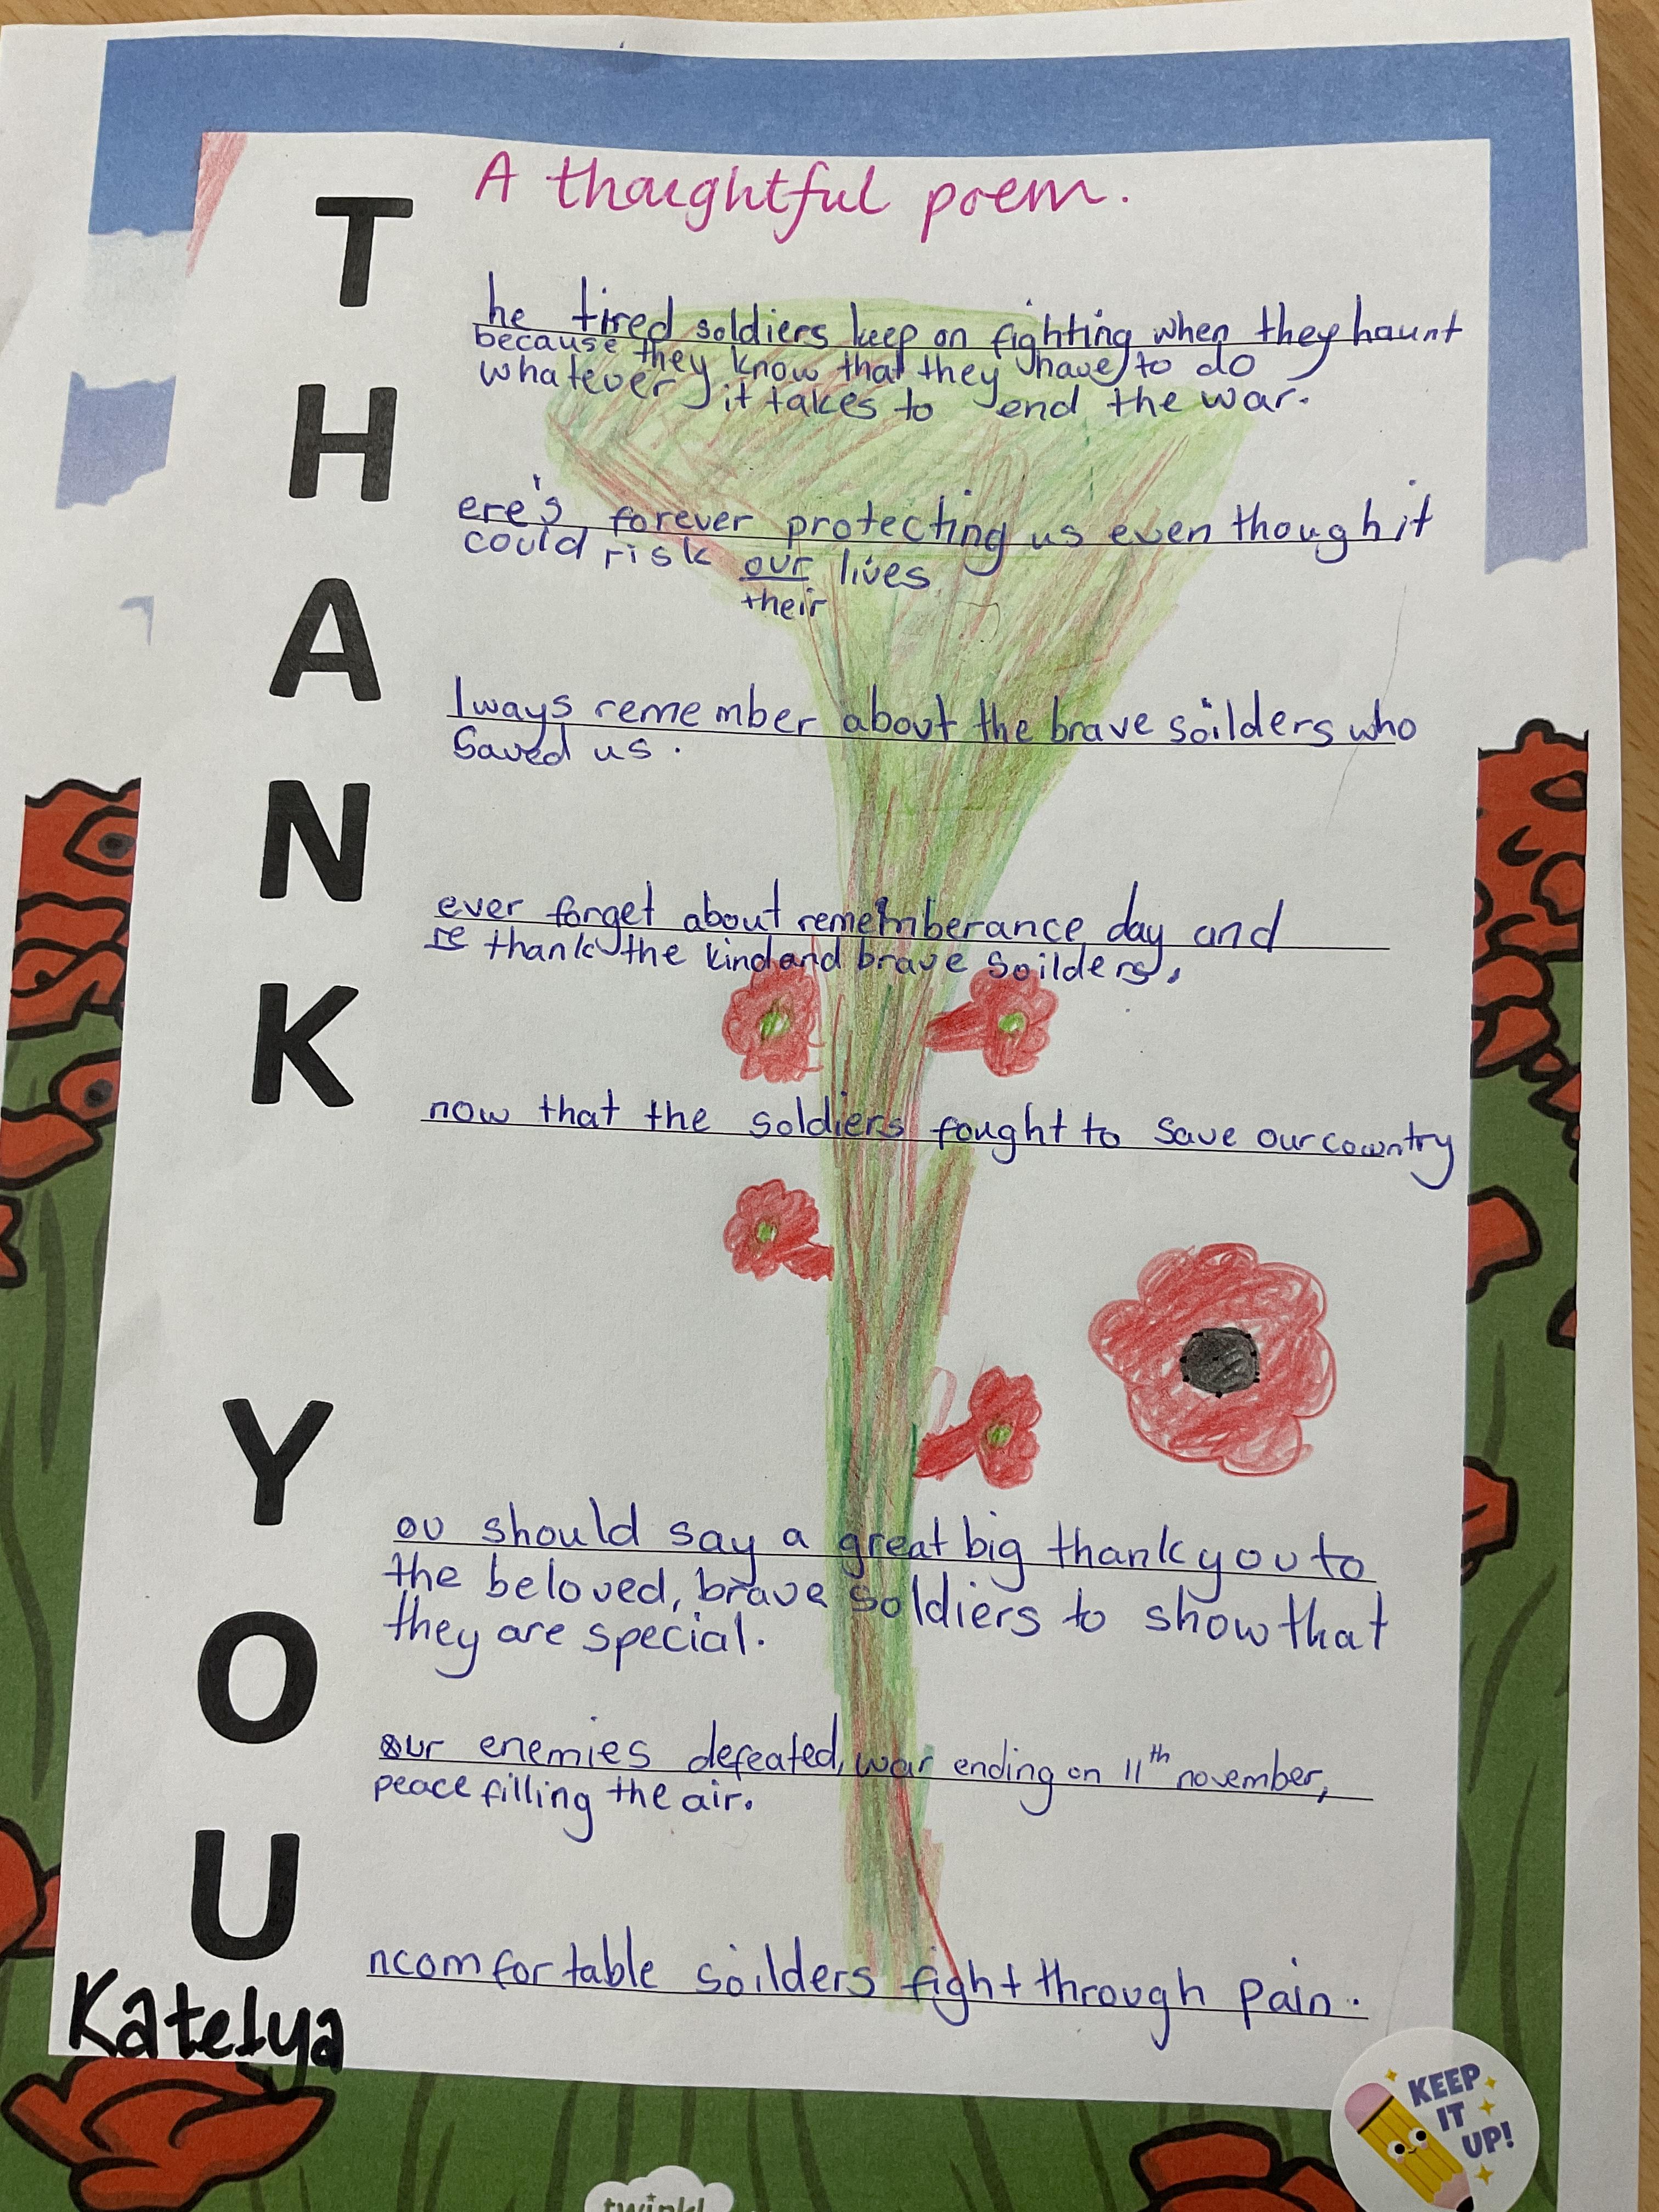 A thoughtful poem.
T he tired soldiers keep on fighting when they haunt
because they know that they have to do
whatever it takes to end the war.
H ere's, forever protecting us even though it
could risk our lives
their
A lways remember about the brave soilders who
saved us.
N ever forget about rememberance day and
re thank the kind and brave soilders.
K now that the soldiers fought to save our cowntry
Y ou should say a great big thank you to
the beloved, brave soldiers to show that
they are special.
O ur enemies defeated, war ending on 11th november,
peace filling the air.
U ncomfortable soilders fight through pain.
Katelya
KEEP
IT
UP!
twinkl